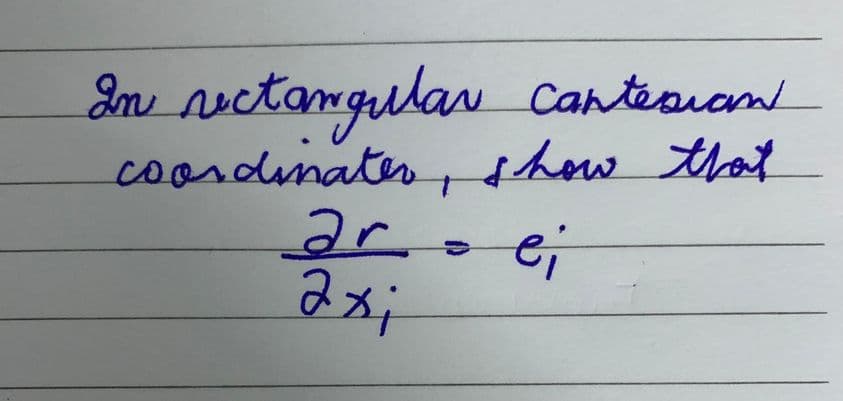 In rectangular Cartesian
coordinates, show that
∂r
= ei
∂xi